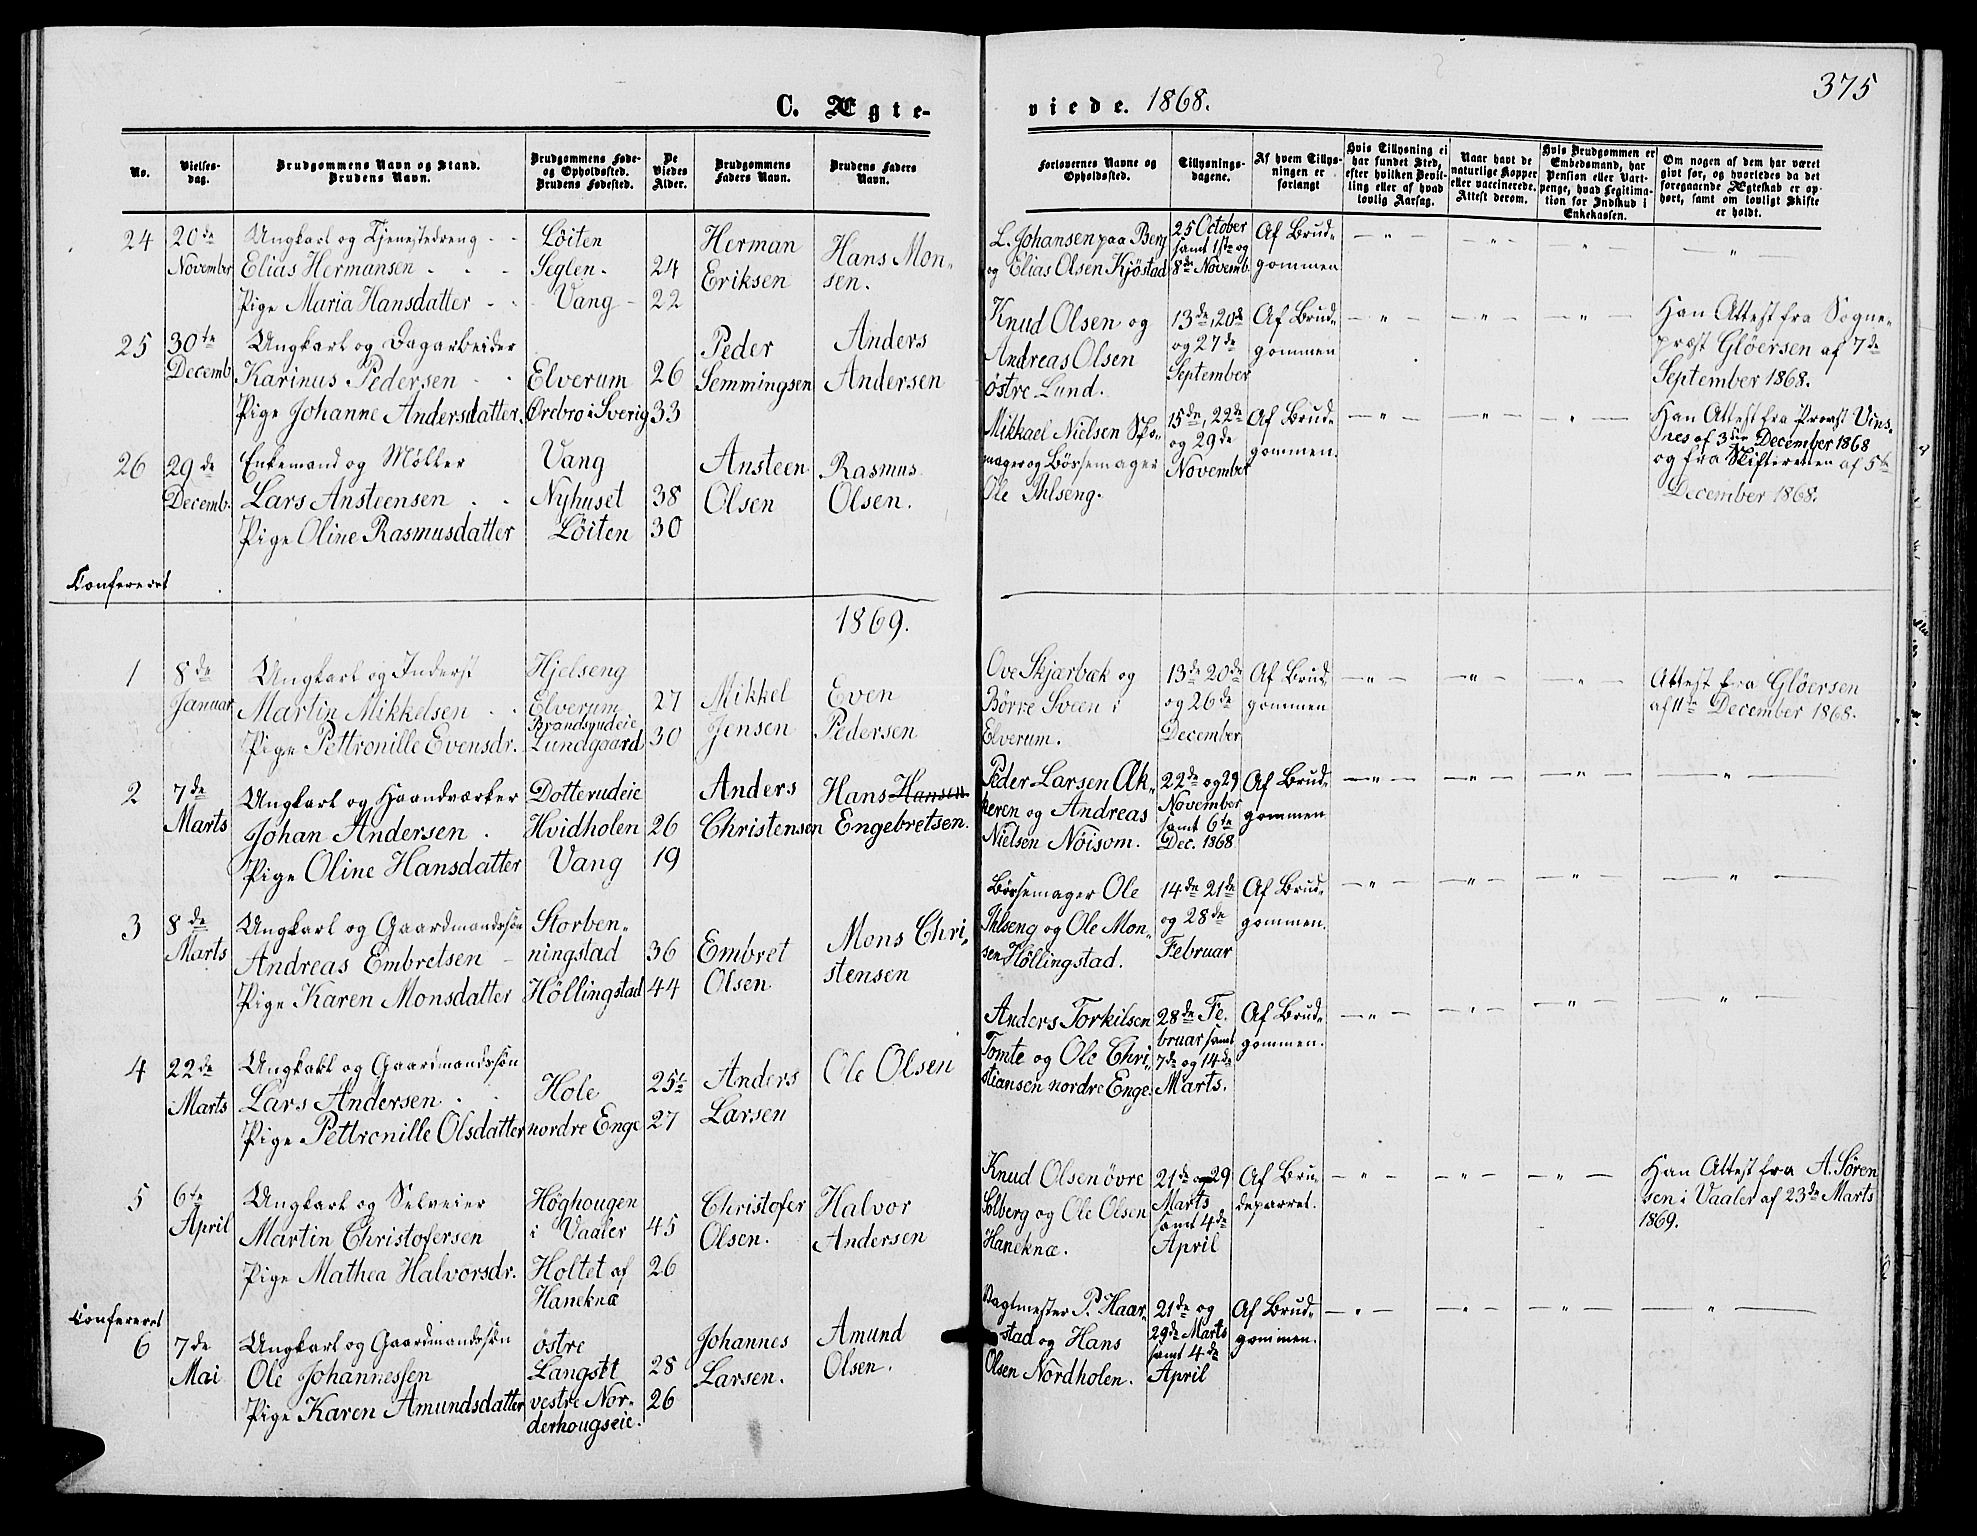 375
C. Ægte-
viede. 1868.
No.
Vielses-
dag.
Brudgommens Navn og Stand.
Brudens Navn.
Brudgommens Føde-
og Opholdssted.
Brudens Fødested.
De
Viedes
Alder.
Brudgommens
Faders Navn.
Brudens Faders
Navn.
Forlovernes Navne og
Opholdssted.
Tillysnings-
dagene.
Af hvem Tillys-
ningen er
forlangt
Hvis Tillysning ei
har fundet Sted,
efter hvilken Bevil-
ling eller af hvad
lovlig Aarsag.
Naar havt de
naturlige Kopper
eller vaccinerede.
Attest derom.
Hvis Brudgommen er
Embedsmand, har
Pension eller Vart-
penge, hvad Legitima-
tion for Indskud i
Enkekassen.
Om nogen af dem har været
gift før, og hvorledes da det
foregaaende Ægteskab er op-
hørt, samt om lovligt Skifte
er holdt.
24
20de
November
Ungkarl og Tjenestedreng
Elias Hermansen
Pige Maria Hansdatter
Løiten
Seglen
Vang
24
22
Herman
Eriksen
Hans Mon-
sen.
L. Johansen paa Berg
og Elias Olsen Kjøstad
25 October
samt 1ste og
8de Novemb.
Af Brud-
gommen
25
30te
Decemb.
Ungkarl og Dagarbeider
Karinus Pedersen
Pige Johanne Andersdatter.
Elverum
Ørebro i Sverig
26
33
Peder
Semmingsen
Anders
Andersen
Knud Olsen og
Andreas Olsen
østre Lund.
13de, 20de
og 27de
September
Af Brud-
gommen
Han Attest fra Sogne-
præst Gløersen af 7de
September 1868.
26
29de
Decemb.
Enkemand og Møller
Lars Ansteensen
Pige Oline Rasmusdatter
Vang
Nyhuset
Løiten
38
30
Ansteen
Olsen
Rasmus
Olsen.
Mikkael Nielsen Sko-
mager og Børsemager
Ole Ihlseng.
15de, 22de
og 29de
November
Af Brud-
gommen.
Han Attest fra Provst Vins-
nes af 3die December 1868
og fra Skifteretten af 5te
December 1868.
Confereret
1869.
1
8de
Januar
Ungkarl og Inderst
Martin Mikkelsen
Pige Pettronille Evensdr.
Hjelseng
Elverum
Brandsrudeie
Lundgaard
27
30
Mikkel
Jensen
Even
Pedersen
Ove Skjærbæk og
Børre Sveen i
Elverum.
13de 20de
og 26de
December
Af Brud-
gommen
Attest fra Gløersen
af 11te December 1868.
2
7de
Marts
Ungkarl og Haandværker
Johan Andersen
Pige Oline Hansdatter
Dotterudeie
Hvidholen
Vang
26
19
Anders
Christensen
Hans Hansen
Engebretsen.
Peder Larsen Ak-
keren og Andreas
Nielsen Nøisom.
22de og 29
November
samt 6te
Dec. 1868
Af Brud-
gommen
3
8de
Marts
Ungkarl og Gaardmandssøn
Andreas Embretsen
Pige Karen Monsdatter
Storben-
ningstad
Høllingstad
36
44
Embret
Olsen
Mons Chri-
stensen
Børsemager Ole
Ihlseng og Ole Mon-
sen Høllingstad.
14de 21de
og 28de
Februar
Af Brud-
gommen.
4
22de
Marts
Ungkarl og Gaardmandssøn
Lars Andersen
Pige Pettronille Olsdatter
Hole
nordre Enge
25½
27
Anders
Larsen
Ole Olsen
Anders Torkilsen
Tomte og Ole Chri-
stiansen nordre Enge.
28de Fe-
bruar samt
7de og 14de
Marts.
Af Brud-
gommen.
5
6te
April
Ungkarl og Selveier
Martin Christofersen
Pige Mathea Halvorsdr.
Høghougen
i Vaaler
Holtet af
Haneknæ
45
26
Christofer
Olsen.
Halvor
Andersen
Knud Olsen øvre
Solberg og Ole Olsen
Haneknæ.
21de og 29
Marts
samt 4de
April
Af Bru-
deparret.
Han Attest fra A. Søren
sen i Vaaler af 23de Marts
1869.
Confereret
6
7de
Mai
Ungkarl og Gaardmandssøn
Ole Johannessen
Pige Karen Amundsdatter
østre
Langset
vestre Nor-
derhougseie.
28
26
Johannes
Larsen.
Amund
Olsen.
Vagtmester P. Haar-
stad og Hans
Olsen Nordholen.
21de og
29de Marts
samt 4de
April
Af Brud-
gommen.